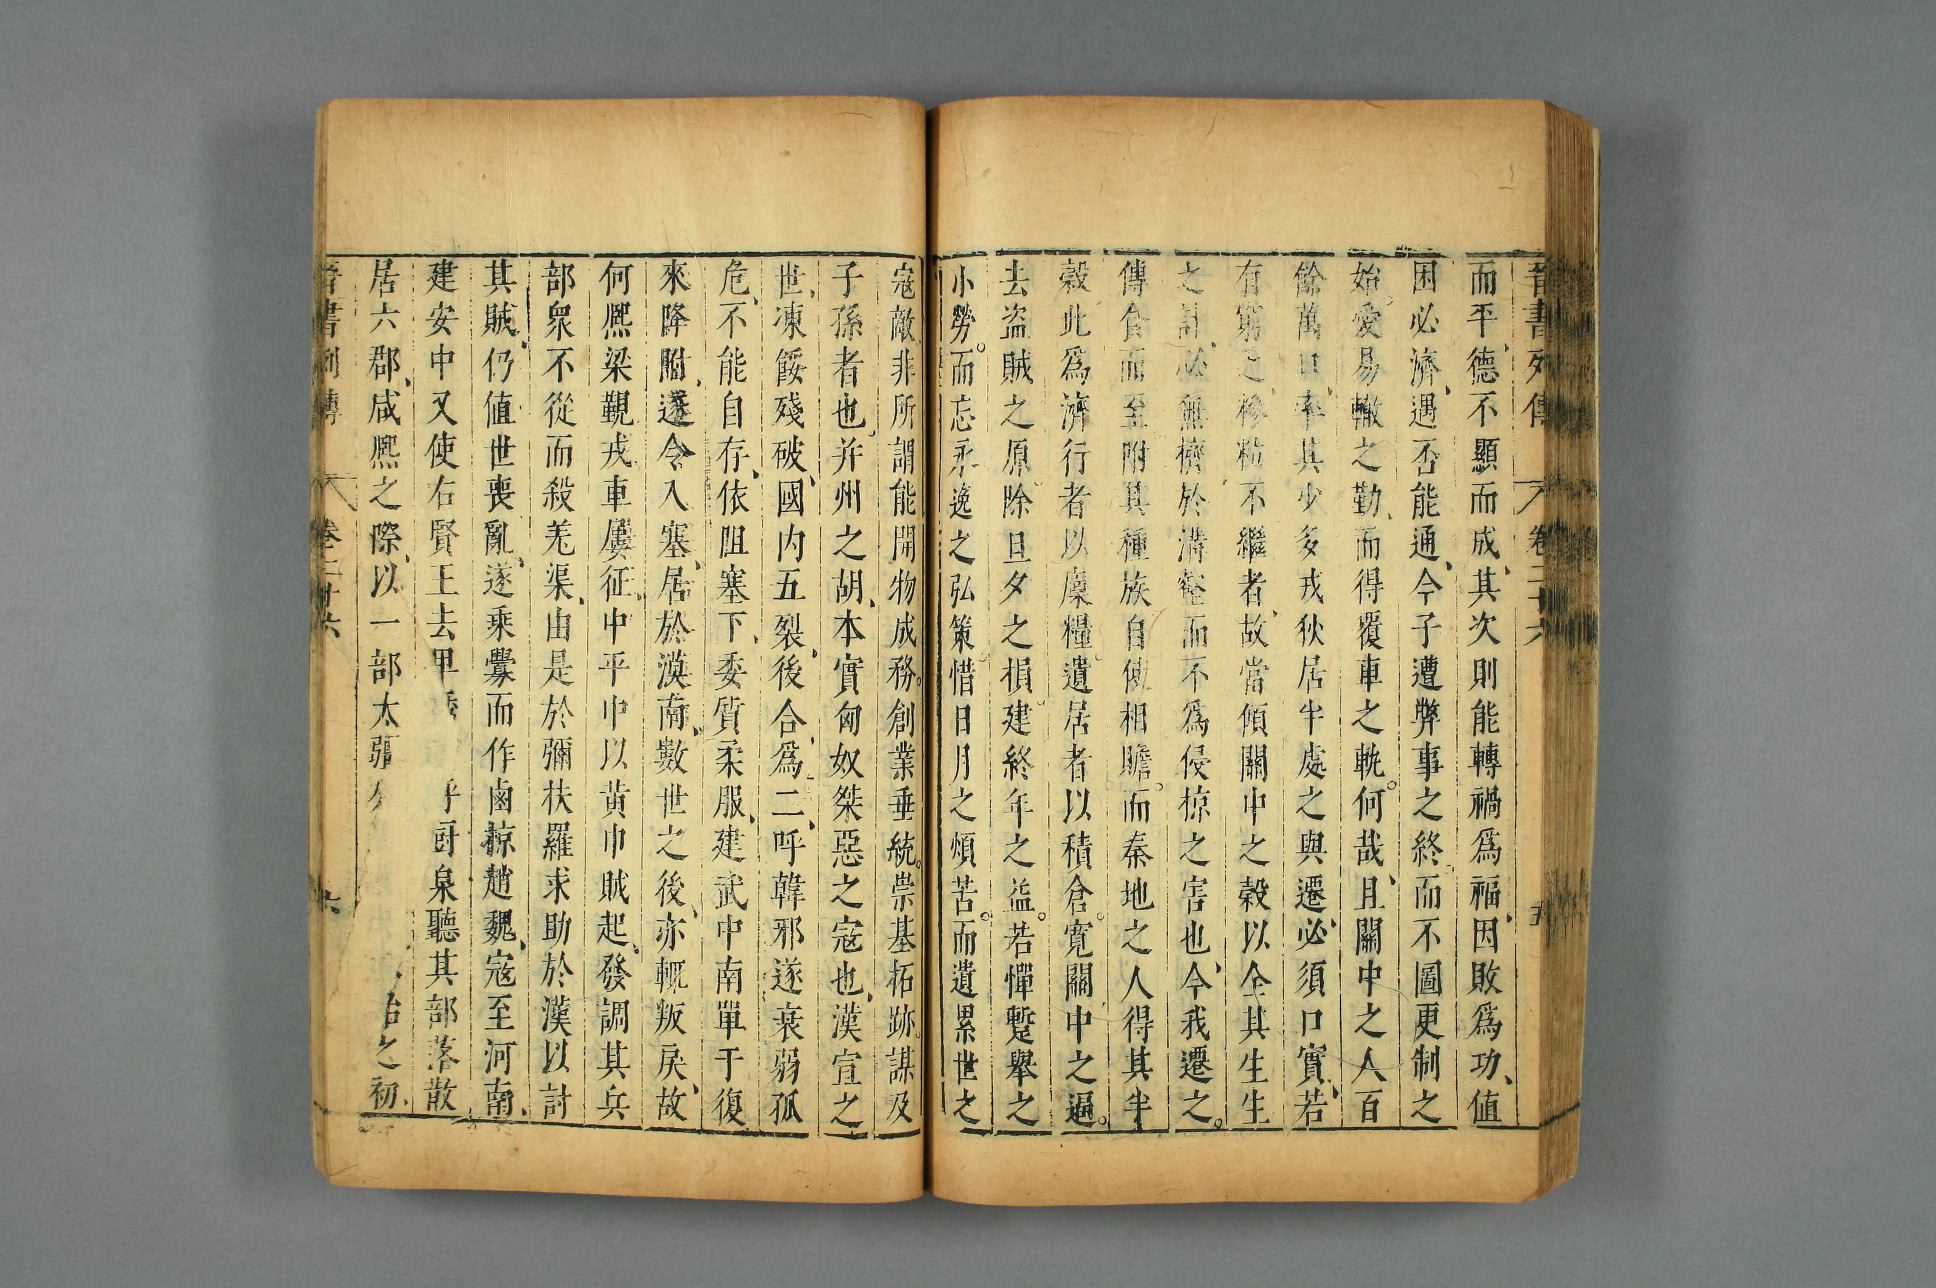 晉書列傳 卷二十六 五
而平、德不顯而成、其次則能轉禍爲福、因敗爲功、值
困必濟、遇否能通、今子遭弊事之終、而不圖更制之
始。愛易轍之勤、而得覆車之軌。何哉、且關中之人百
餘萬口、率其少多戎狄居半處之與遷、必須口實、若
有窮乏、糝粒不繼者、故當傾關中之穀以全其生生
之計、必無擠於溝壑而不爲侵掠之害也、今我遷之。
傳食而至附其種族自使相贍。而秦地之人得其半
穀此爲濟行者以廩糧。遺居者以積倉。寬關中之逼。
去盜賊之原。除旦夕之損。建終年之益。若憚蹔舉之
小勞。而忘永逸之弘策。惜日月之煩苦。而遺累世之
寇敵、非所謂能開物成務。創業垂統。崇基拓跡。謀及
子孫者也、并州之胡、本實匈奴桀惡之寇也、漢宣之
世、凍餒殘破、國內五裂、後合爲二、呼韓邪遂衰弱孤
危、不能自存、依阻塞下、委質柔服、建武中南單于復
來降附、遂令入塞、居於漠南、數世之後、亦輒叛戾、故
何熙梁覲戎車屢征、中平中以黃巾賊起、發調其兵
部衆不從而殺羌渠、由是於彌扶羅求助於漢以討
其賊、仍值世喪亂、遂乘釁而作鹵掠趙魏、寇至河南、
建安中又使右賢王去卑 呼廚泉聽其部落散
居六郡、咸熙之際、以一部太強分 始之初、
晉書列傳 卷二十六 六